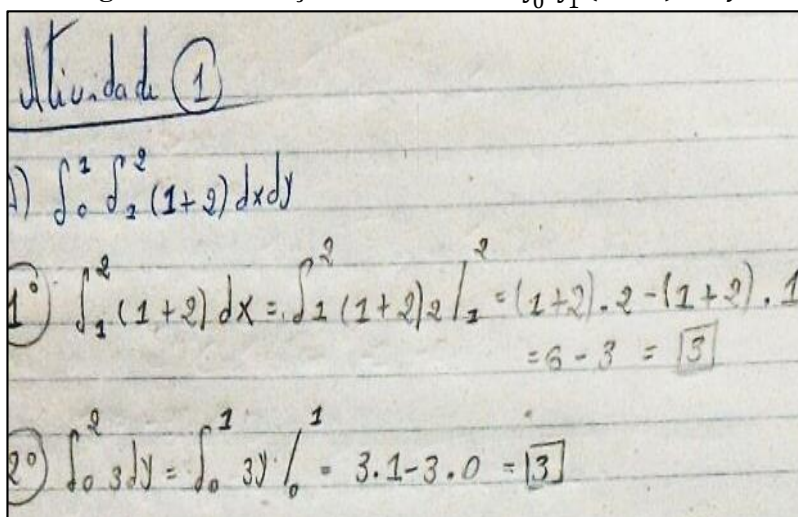 Atividade 1
A) ∫₀¹ ∫₁² (1+2) dxdy
1º) ∫₁² (1+2) dx = ∫₁² (1+2)2 |₁² = (1+2).2-(1+2).1
=6-3 = 3
2º) ∫₀² 3dy = ∫₀¹ 3y |₀¹ = 3.1-3.0 = 3